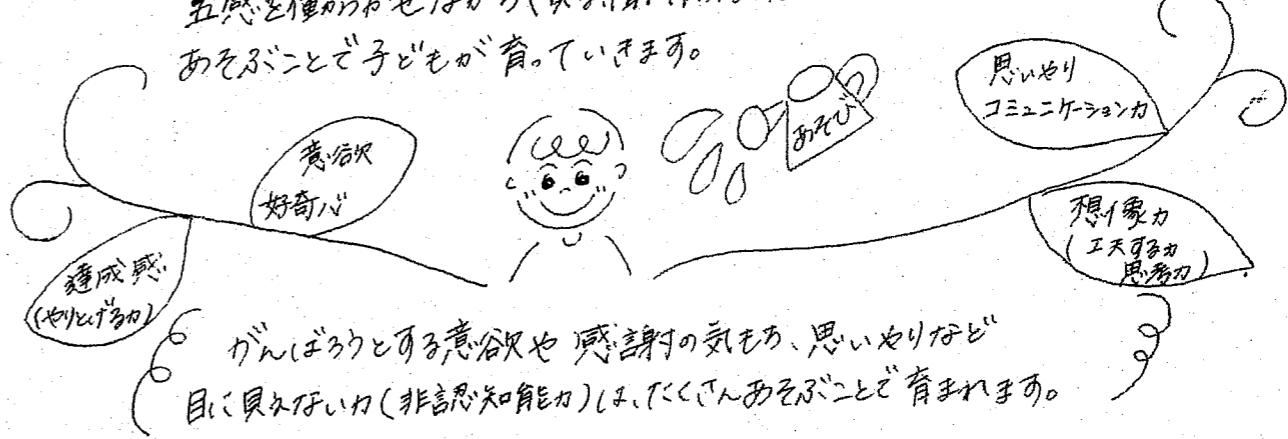 五感を働かせながら
あそぶことで子どもが育っていきます。
思いやり
コミュニケーション力
あそび
意欲
好奇心
想像力
(工夫する力
思考力)
達成感
(やりとげる力)
がんばろうとする意欲や感謝の気もち、思いやりなど
目に見えない力(非認知能力)は、たくさんあそぶことで育まれます。